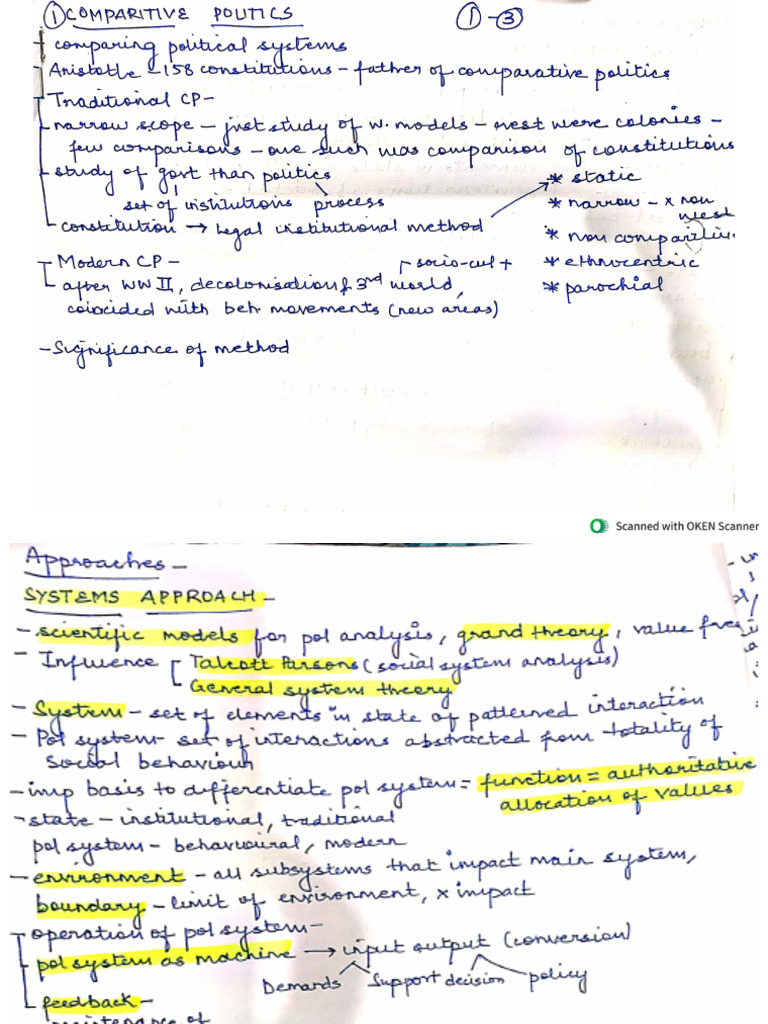 ① COMPARITIVE POLITICS ①-③
- comparing political systems
- Aristotle - 158 constitutions - father of comparative politics
Traditional CP-
narrow scope - just study of w. models - rest were colonies -
few comparisons - one such was comparison of constitutions
study of govt than politics
set of institutions process
constitution → legal institutional method
* static
* narrow - x non
west
* non comparitiv.
* ethnocentric
* parochial
Modern CP -
socio-cul +
after WW II, decolonisation & 3rd world,
coincided with beh. movements (new areas)
- Significance of method
Scanned with OKEN Scanner
Approaches -
SYSTEMS APPROACH -
- scientific models for pol analysis, grand theory, value free
- Influence Talcott Parsons (social system analysis)
General system theory
- System - set of elements in state of patterned interaction
- Pol system - set of interactions abstracted from totality of
social behaviour
- imp basis to differentiate pol system = function = authoritative
allocation of values
- state - institutional, traditional
pol system - behavioural, modern
- environment - all subsystems that impact main system,
boundary - limit of environment, x impact
operation of pol system -
pol system as machine → input output (conversion)
Demands Support decision policy
feedback -